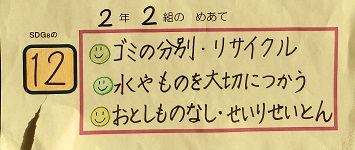 2年2組の めあて
SDGsの
12
ゴミの分別・リサイクル
水やものを大切につかう
おとしものなし・せいりせいとん